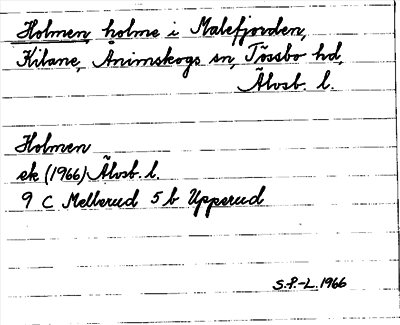 Holmen, holme i Malefjorden,
Kilane, Ånimskogs sn, Tössbo hd,
Älvsb. l.
Holmen
ek (1966) Älvsb. l.
9 C Mellerud 5 b Upperud
S.P.-L. 1966